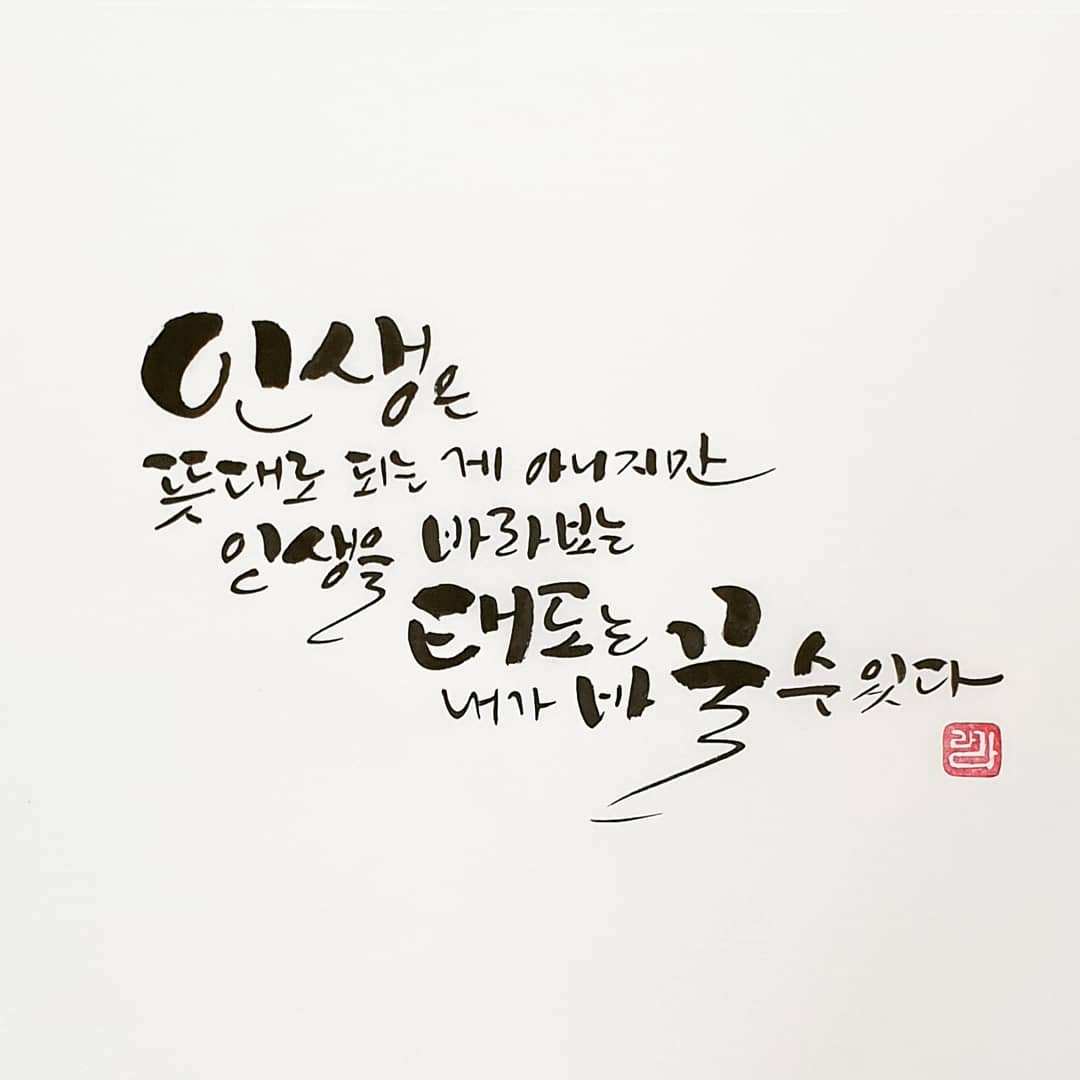 인생은
뜻대로 되는 게 아니지만
인생을 바라보는
태도는
내가 바꿀 수 있다